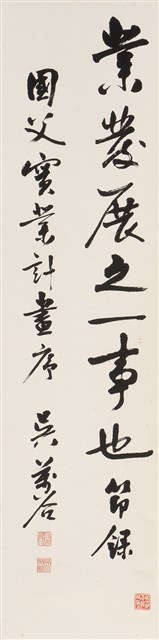 業發展之一事也節錄
國父實業計畫序 吳萬谷